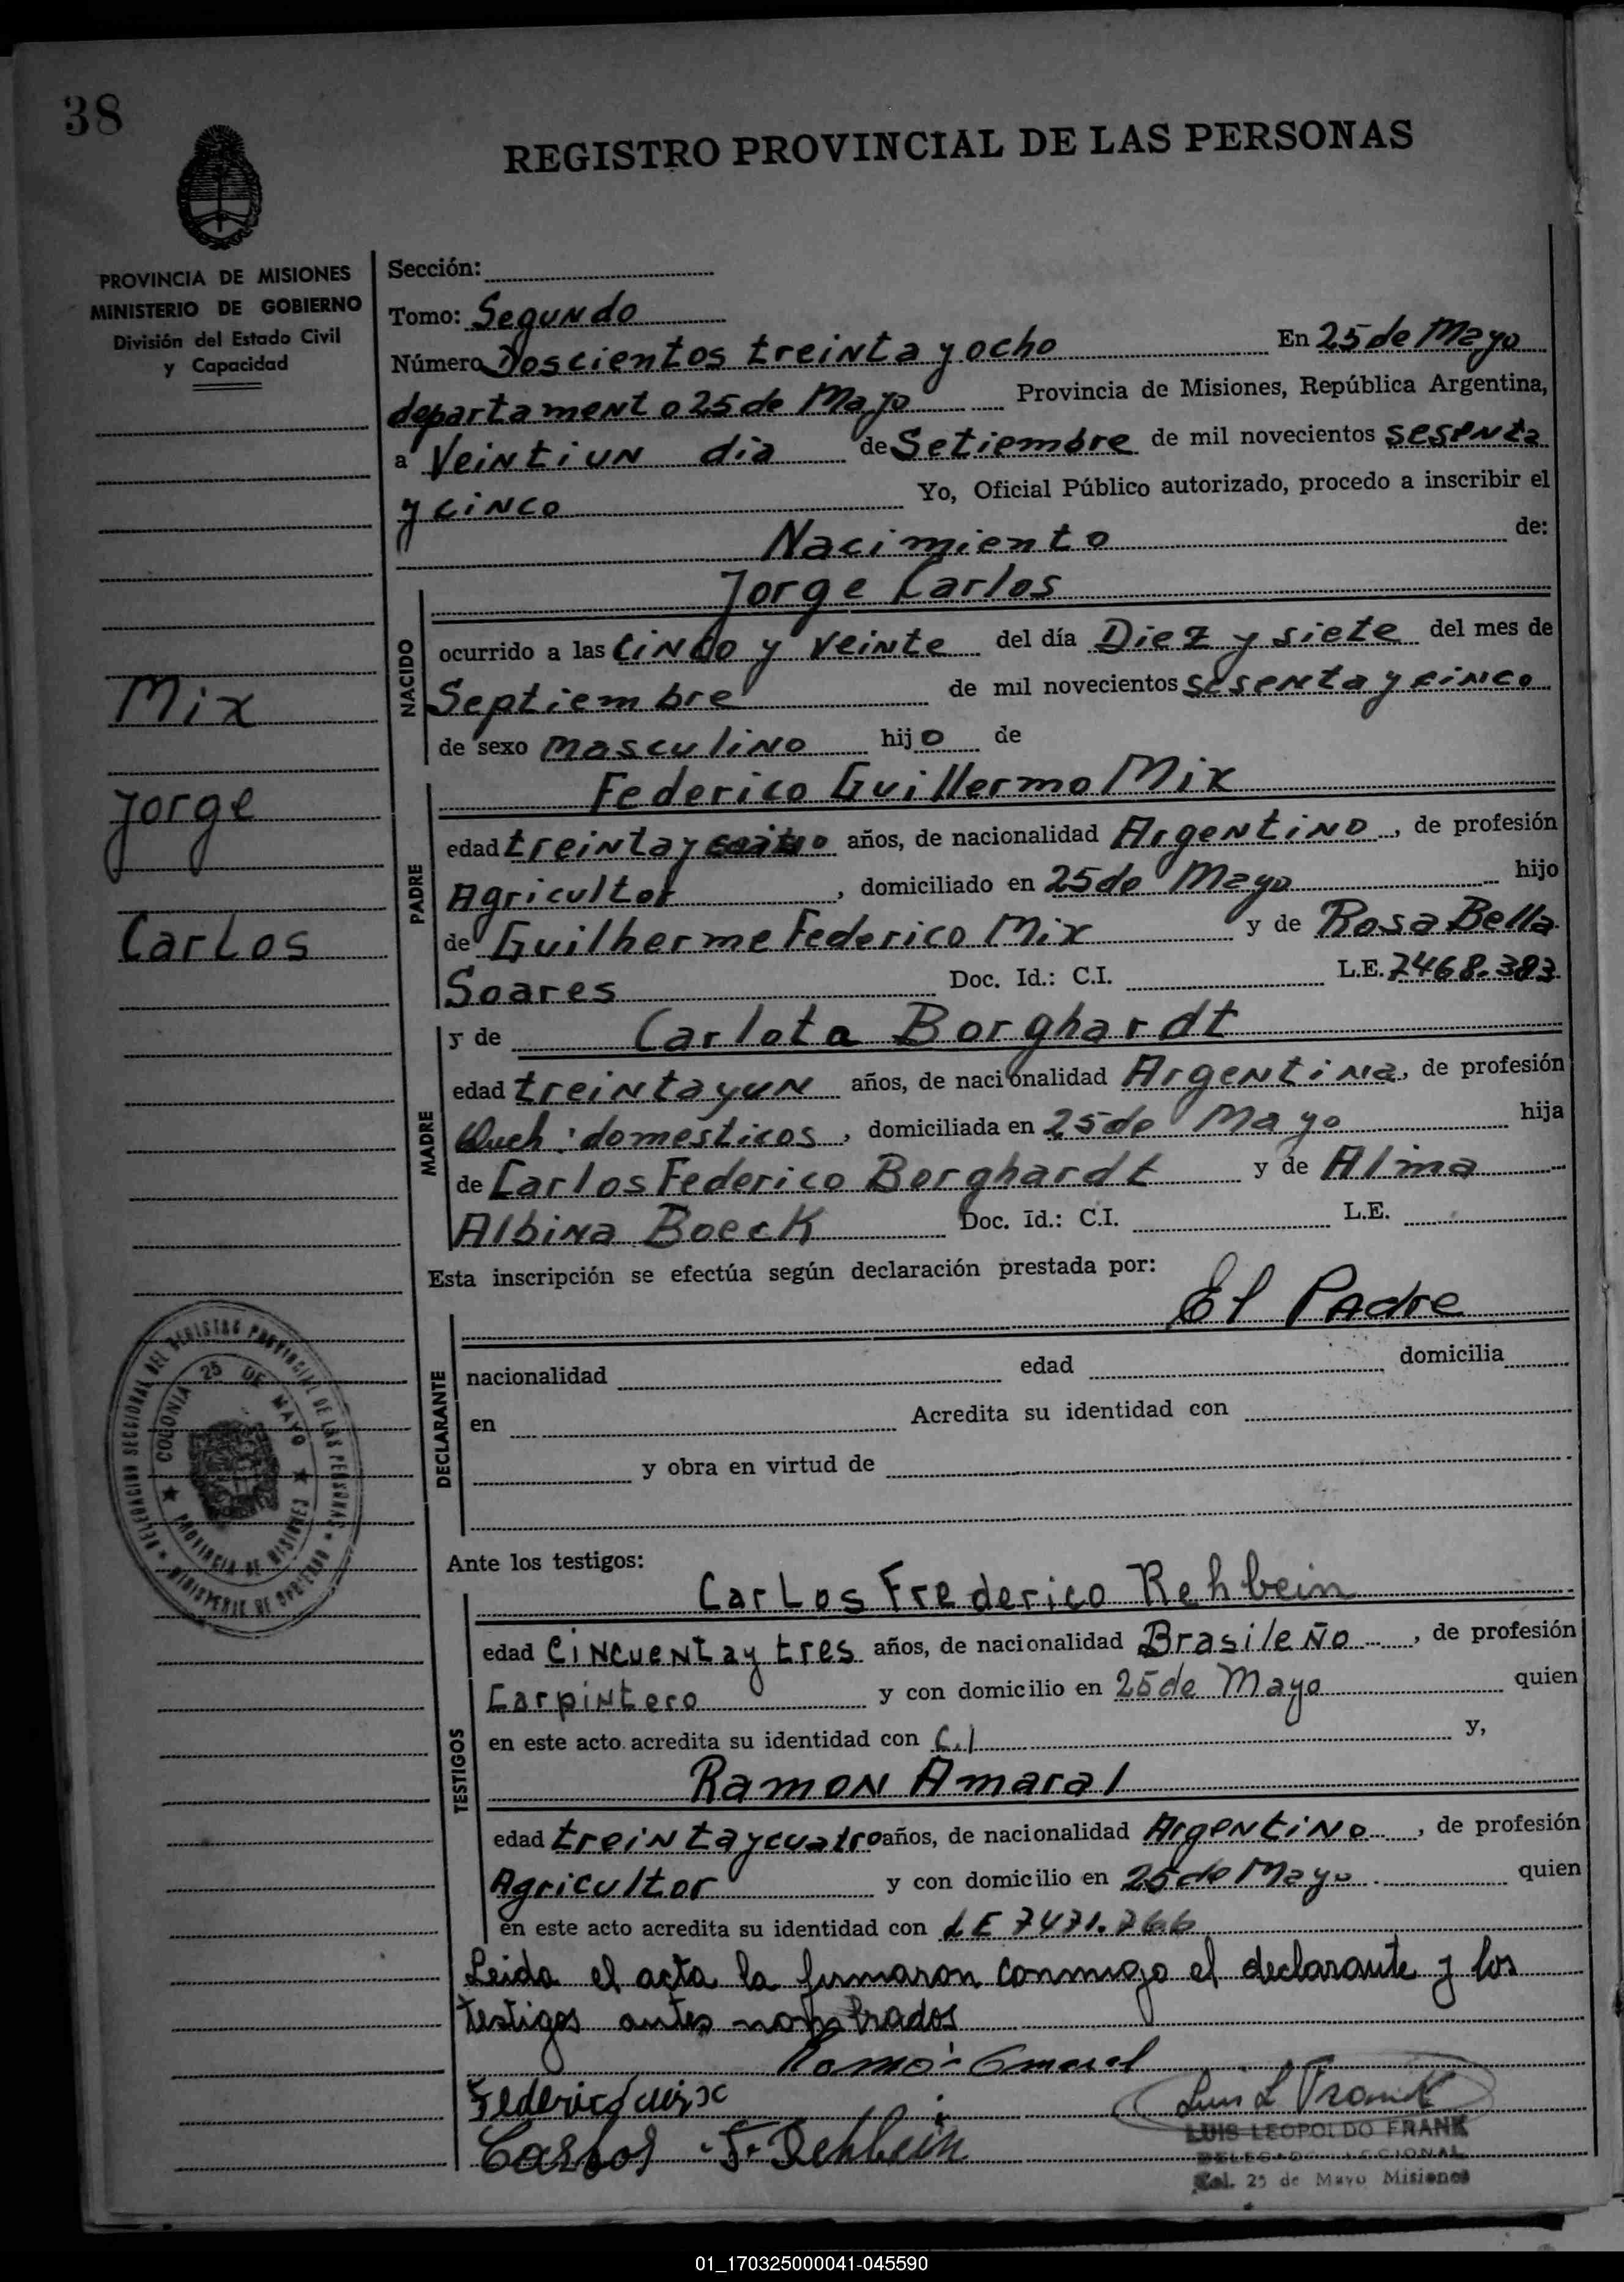 38
REGISTRO PROVINCIAL DE LAS PERSONAS
PROVINCIA DE MISIONES
MINISTERIO DE GOBIERNO
División del Estado Civil
y Capacidad
Mix
Jorge
Carlos
Sección:
Tomo: Segundo
Número Doscientos treinta y ocho En 25 de Mayo
departamento 25 de Mayo Provincia de Misiones, República Argentina,
a Veintiun dia de Setiembre de mil novecientos sesenta
y cinco Yo, Oficial Público autorizado, procedo a inscribir el
Nacimiento de:
Jorge Carlos
NACIDO
ocurrido a las Cinco y Veinte del día Diez y siete del mes de
Septiembre de mil novecientos sesenta y cinco
de sexo masculino hijo de
Federico Guillermo Mix
PADRE
edad treinta y años, de nacionalidad Argentino, de profesión
Agricultor, domiciliado en 25 de Mayo hijo
de Guilherme Federico Mix y de Rosa Bella
Soares Doc. Id.: C.I. L.E. 7468.383
y de Carlota Borghardt
MADRE
edad treinta y un años, de nacionalidad Argentina, de profesión
Queh: domesticos, domiciliada en 25 de Mayo hija
de Carlos Federico Borghardt y de Alma
Albina Boeck Doc. Id.: C.I. L.E.
Esta inscripción se efectúa según declaración prestada por:
El Padre
DECLARANTE
nacionalidad edad domicilia
en Acredita su identidad con
y obra en virtud de
DELEGACION SECCIONAL DEL REGISTRO PROVINCIAL DE LAS PERSONAS
COLONIA 25 DE MAYO
PROVINCIA DE MISIONES
MINISTERIO DE GOBIERNO
Ante los testigos:
Carlos Frederico Rehbein
TESTIGOS
edad Cincuenta y tres años, de nacionalidad Brasileño, de profesión
Carpintero y con domicilio en 25 de Mayo quien
en este acto acredita su identidad con C.I y,
Ramon Amaral
edad treinta y cuatro años, de nacionalidad Argentino, de profesión
Agricultor y con domicilio en 25 de Mayo quien
en este acto acredita su identidad con LE 7471.766
Leida el acta la firmaron conmigo el declarante y los
testigos antes nombrados
Ramon Amaral
Federico Mix
Luis L Frank
Carlos F. Rehbein
LUIS LEOPOLDO FRANK
DELEGADO SECCIONAL
Col. 25 de Mayo Misiones
01_170325000041-045590